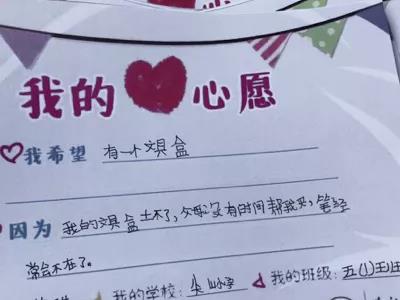 我的心愿
我希望 有一个文具盒
因为 我的文具盒土不了,父母没有时间帮我买,笔经
常会不在了。
我的学校:尖山小学 我的班级:五(1)班